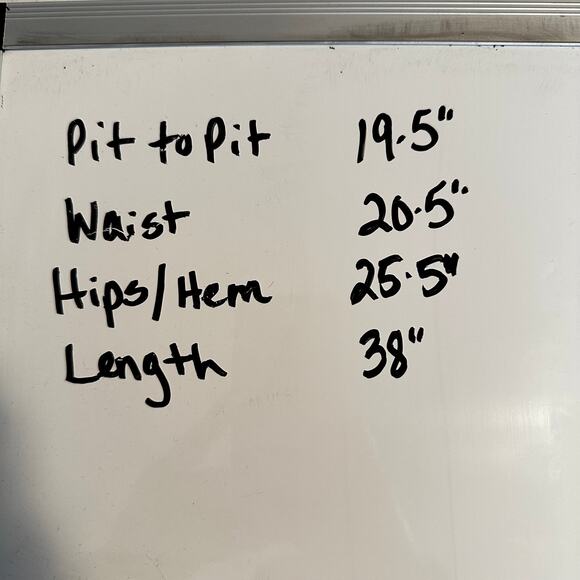 Pit to Pit 19.5"
Waist 20.5"
Hips/Hem 25.5"
Length 38"